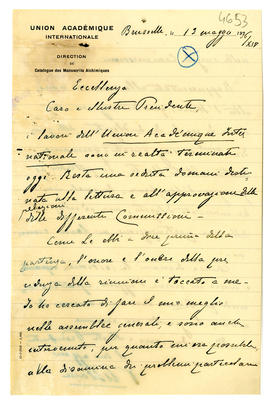 4653
UNION ACADÉMIQUE
INTERNATIONALE
DIRECTION
DU
Catalogue des Manuscrits Alchimiques
Bruxelles, le 13 maggio 1936/XIV
Eccellenza
Caro e Illustre Presidente,
i lavori dell'Union Académique Inter
nationale sono in realtà terminati
oggi. Resta una seduta domani desti
nata alla lettura e all'approvazione delle
relazioni
delle differenti Commissioni –
Come Le ebbi a dire prima della
partenza, l'onore e l'onere della pre
sidenza della riunione è toccato a me.
Io ho cercato di fare il mio meglio
nelle assemblee generali, e sono anche
intervenuto, per quanto mi era possibile,
alla disamina dei problemi particolari